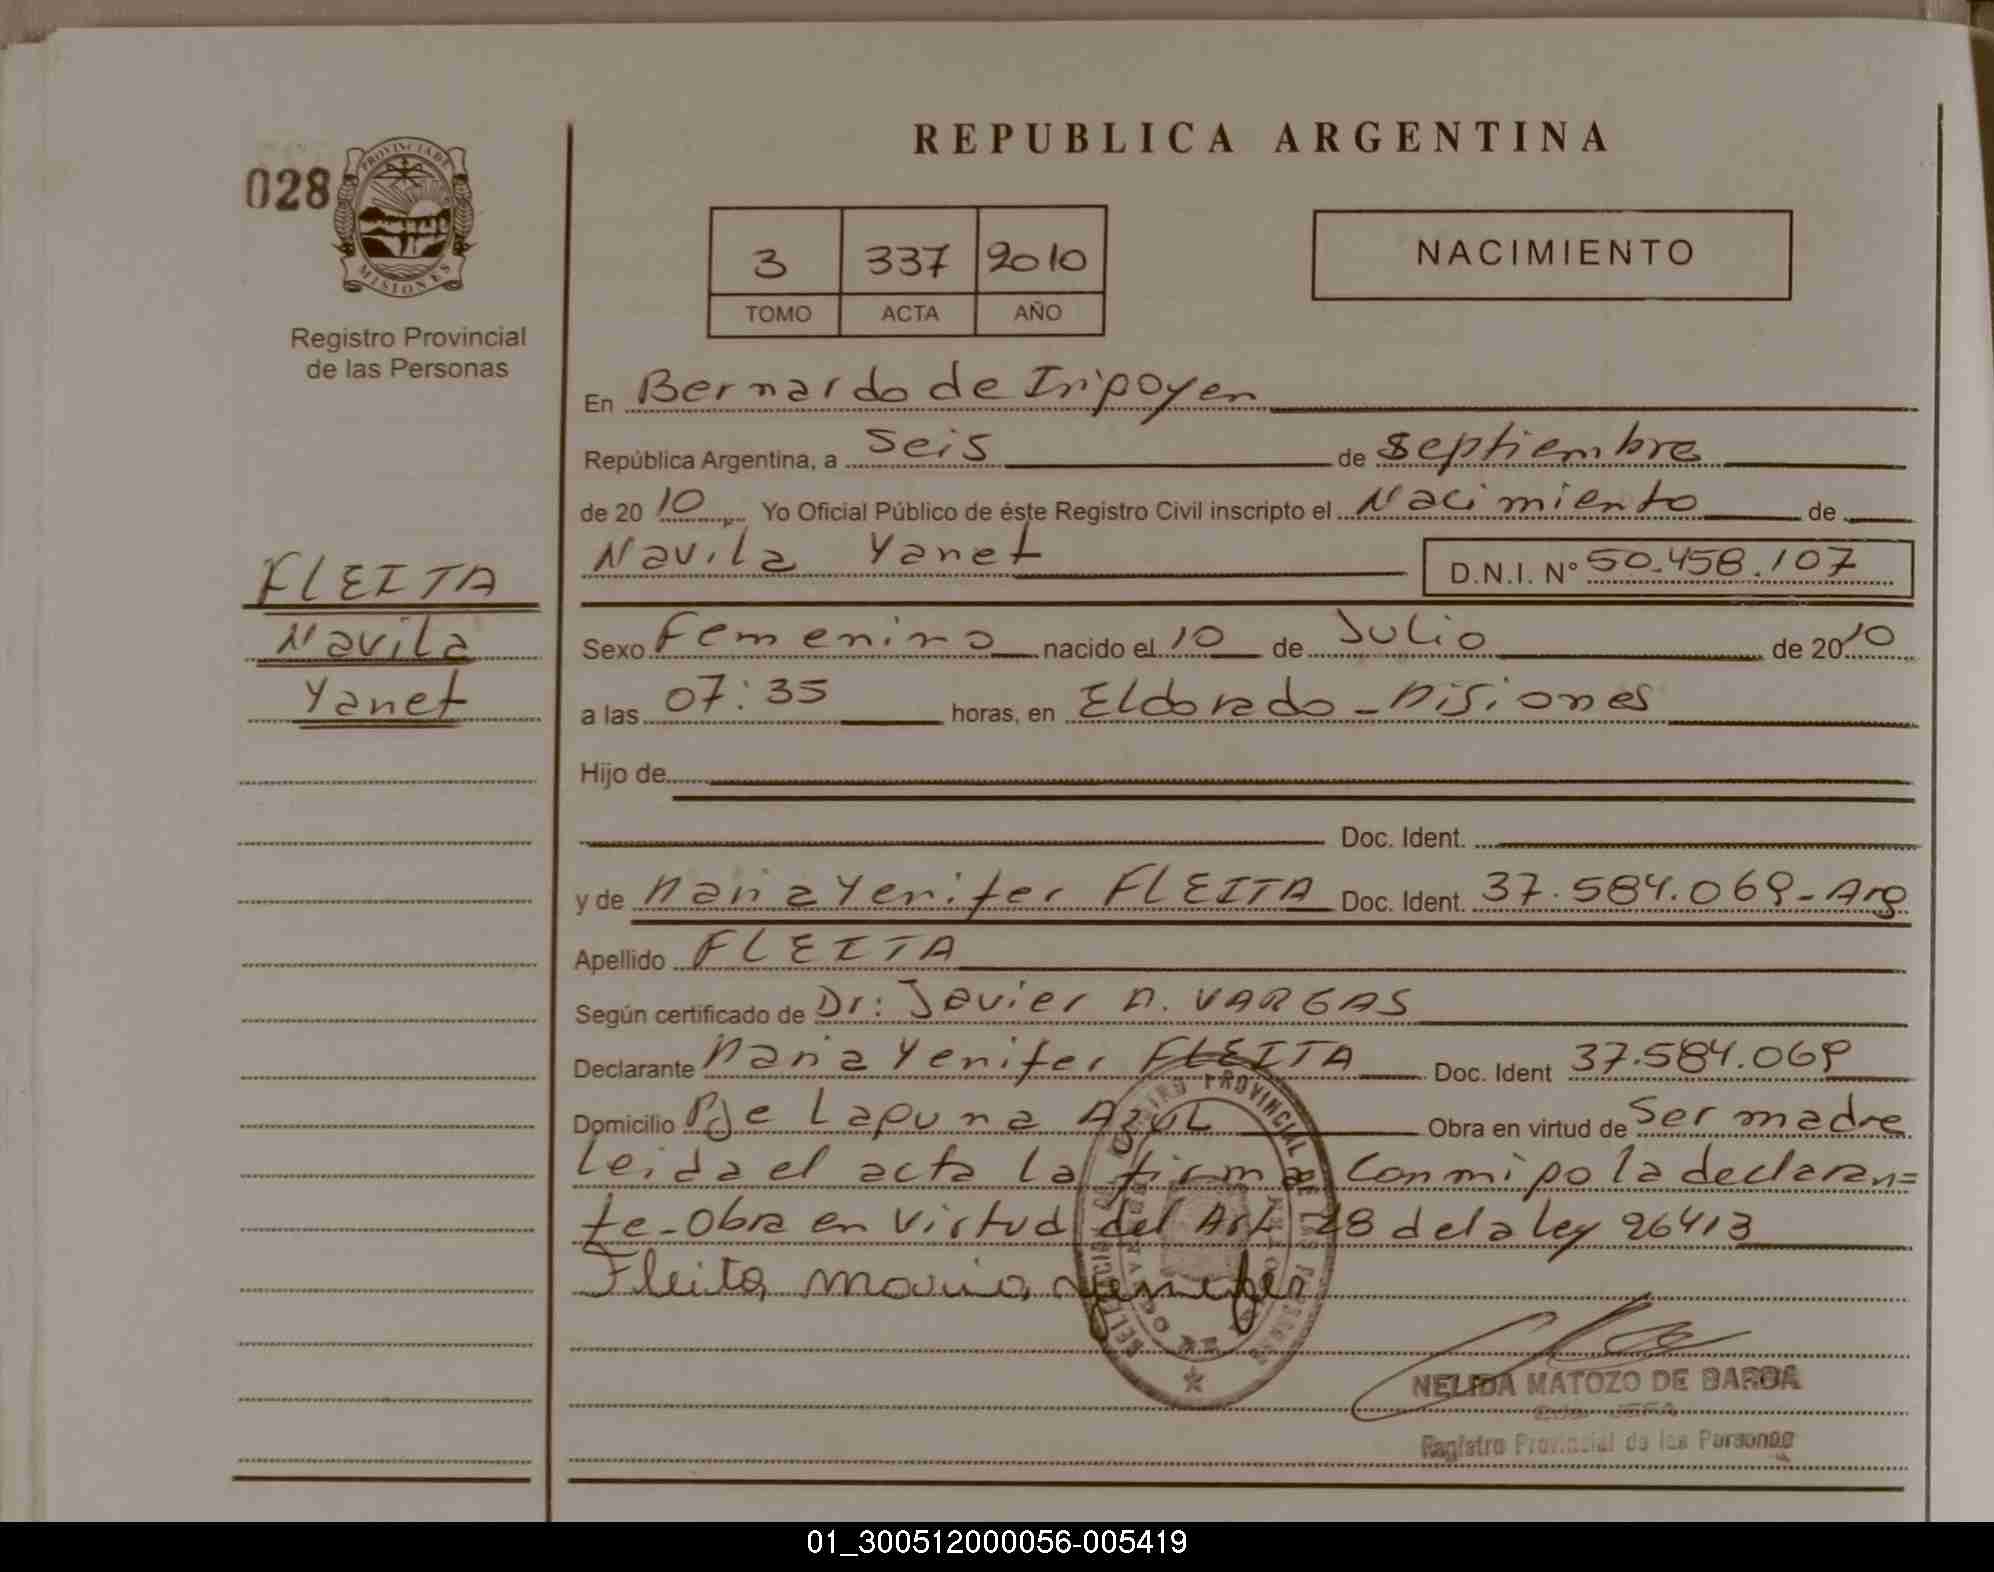 REPUBLICA ARGENTINA
028
PROVINCIA DE
MISIONES
Registro Provincial
de las Personas
3 337 2010
TOMO ACTA AÑO
NACIMIENTO
En Bernardo de Iripoyen
República Argentina, a Seis de septiembre
de 2010 Yo Oficial Público de éste Registro Civil inscripto el Nacimiento de
Navila Yanet D.N.I. N° 50.458.107
FLEITA
Navila
Yanet
Sexo Femenino nacido el 10 de Julio de 2010
a las 07:35 horas, en Eldorado - Misiones
Hijo de
Doc. Ident.
y de Maria Yenifer FLEITA Doc. Ident. 37.584.069 - Arg
Apellido FLEITA
Según certificado de Dr: Javier A. VARGAS
Declarante Maria Yenifer FLEITA Doc. Ident 37.584.069
Domicilio Pje Lapuna Azul Obra en virtud de Ser madre
Leida el acta la firma Conmipo la declaran=
te - Obra en Virtud del Art 28 de la ley 26413
Fleita maria yenifer
PROVINCIAL DE LAS
NELIDA MATOZO DE BARDA
JEFA
Registro Provincial de las Personas
01_300512000056-005419